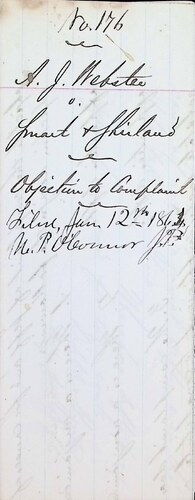 No. 176
A. J. Webster
v.
Smart & Shirland
Objection to Complaint
Filed, Jan. 12th 1863.
N. P. O'Connor J.P.